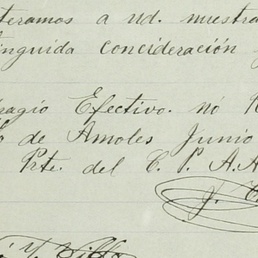 teramos a ud. nuestra
tinguida concideración y
ragio Efectivo. nó R
o de Amoles Junio
Prte. del C. P. A. A
J. C
Y. Villa